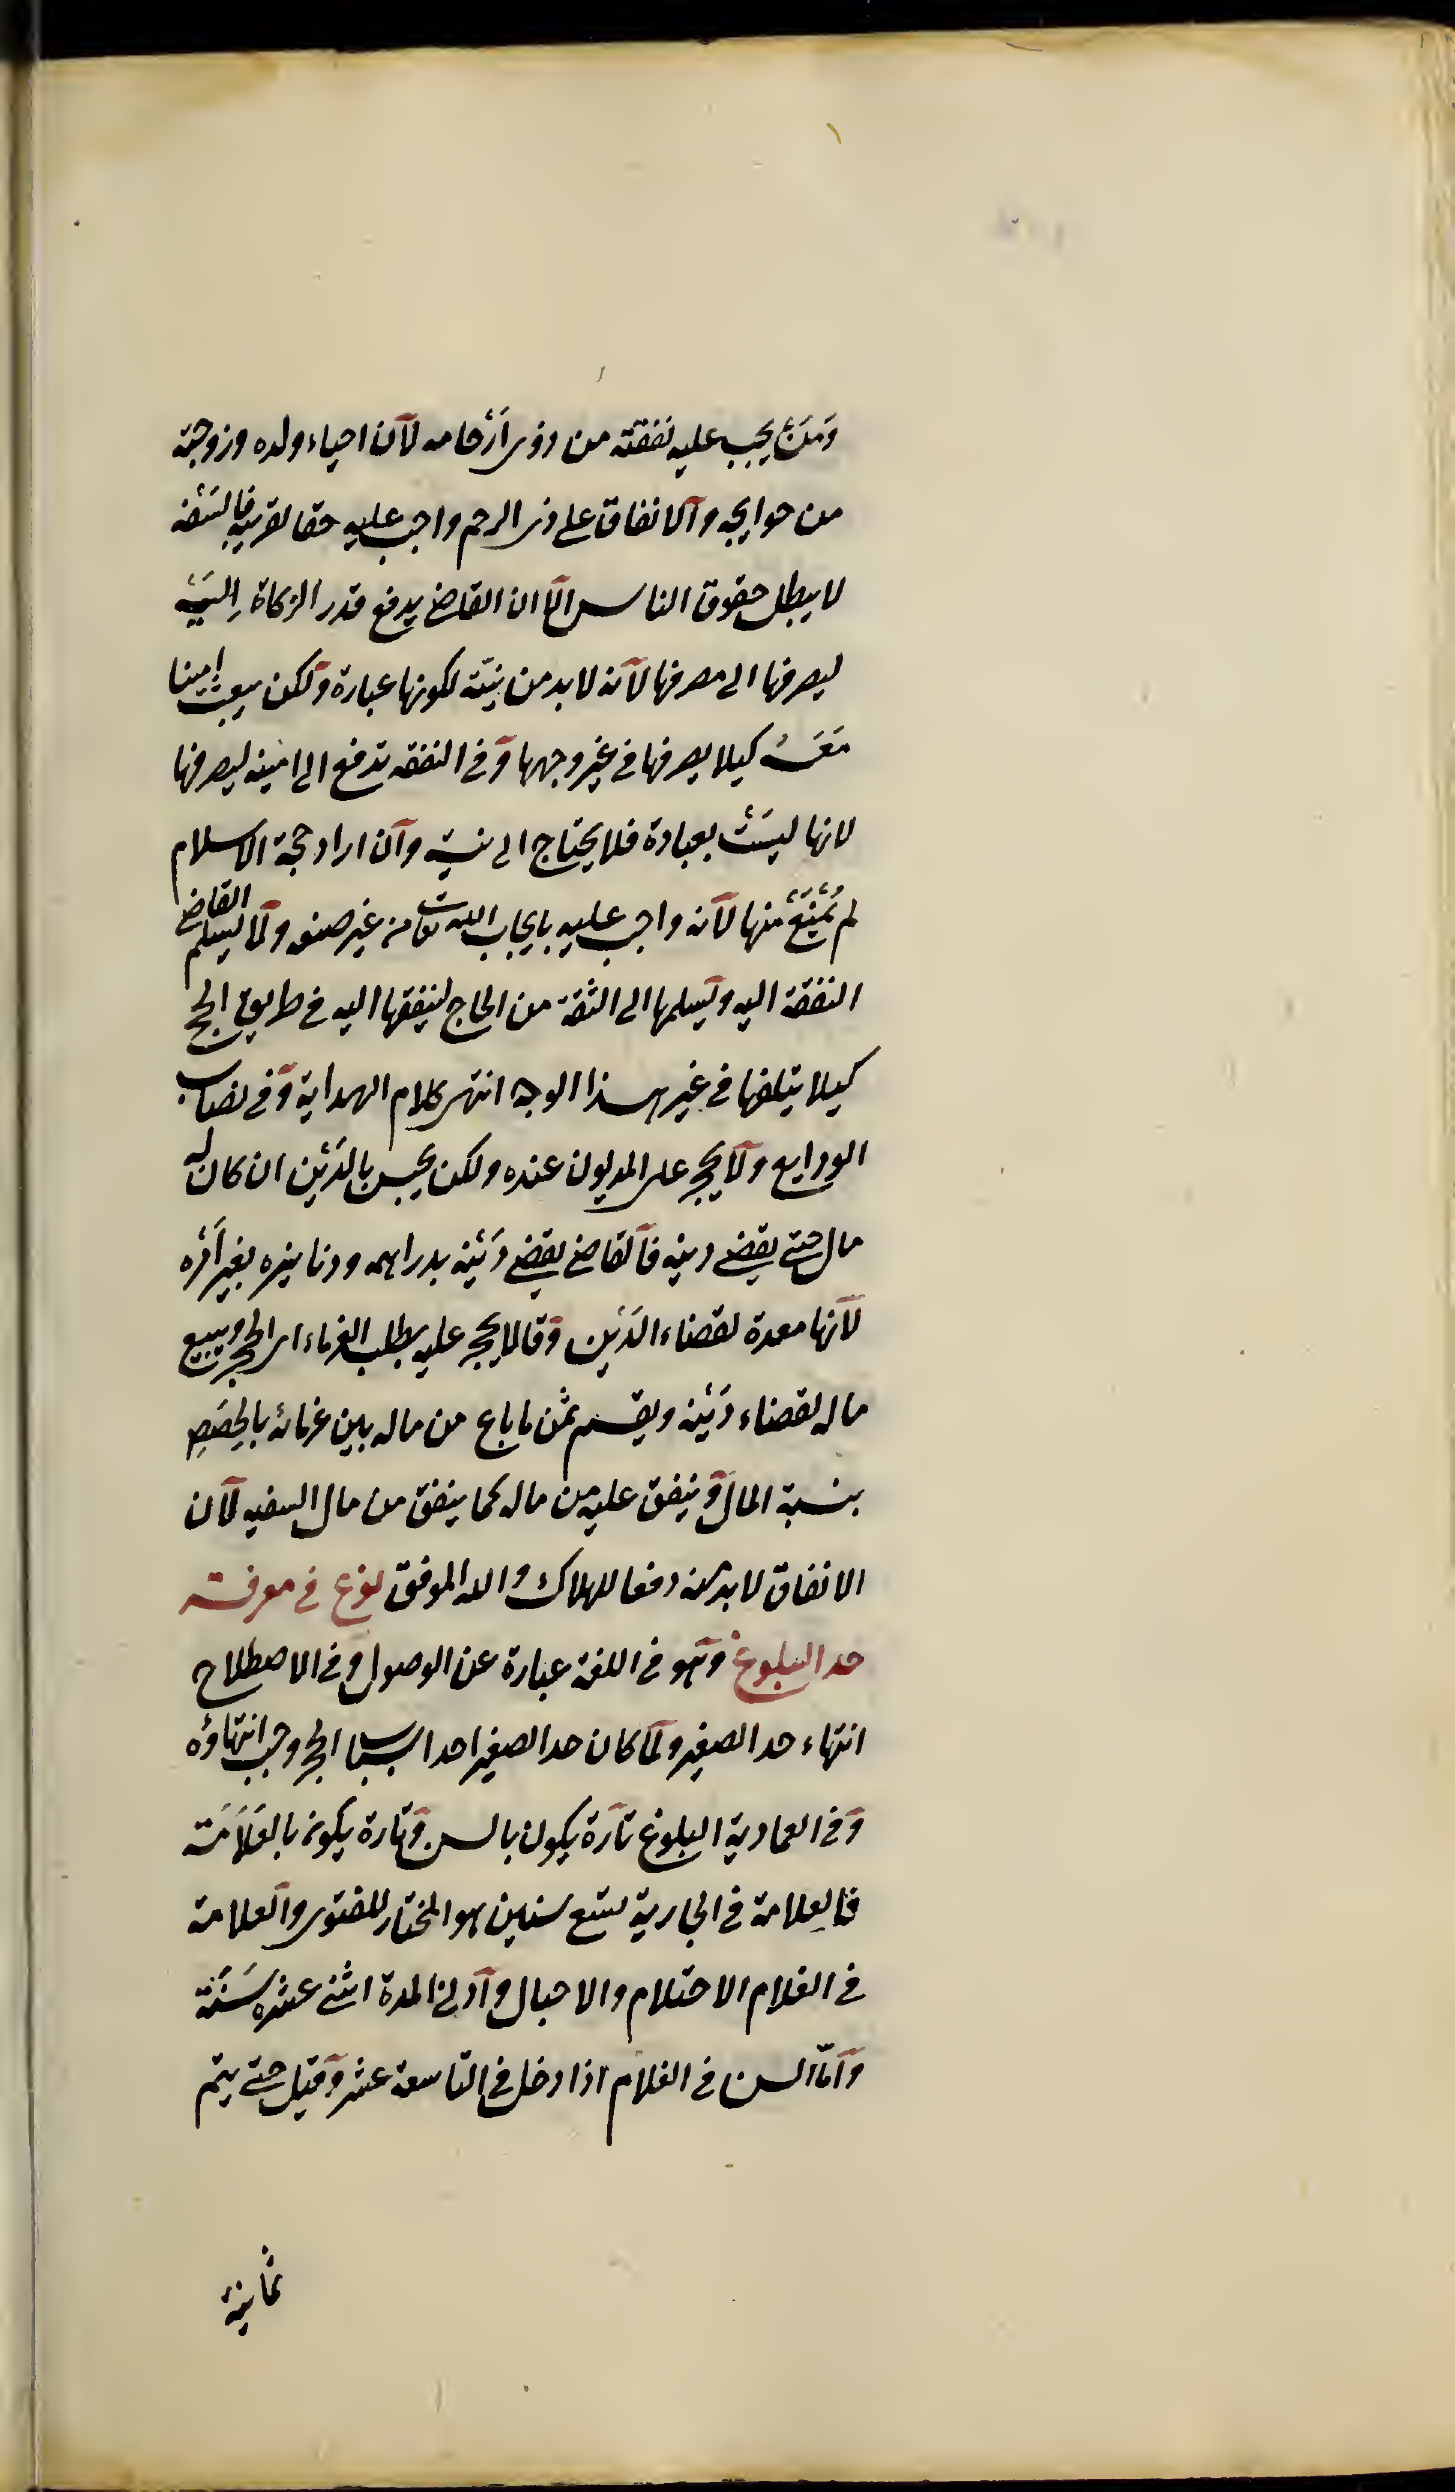 وَمَنْ يجب عليه نفقته من ذوى اَرْحامه لآن احياء ولده وزوجته
من حوايجه وآلانفاق على ذى الرحم واجب عليه حقا لقريبه فالسَفه
لا يبطل حقوق الناس الآ ان القاضى يدفع قدر الزكاة اِليَه
ليصرفها الى مصرفها لآنه لا بد من نيّة لكونها عبادة وآلكن يبعث امينا
مَعَهُ كيلا يصرفها فى غير وجهها وآفى النفقه تدفع الى امينه ليصرفها
لانها ليسَتْ بعبادة فلا يحتاج الى نية وآن اراد حجة الاسلام
لم يُمْنَعْ منها لآنه واجب عليه بايجاب الله تعا من غير صنعه ولآ يسلم القاضى
النفقة اليه وآيسلمها الى الثقة من الحاج لينفقها اليه فى طريق الحج
كيلا يتلفها فى غير هذا الوجه انتهى كلام الهداية وآفى نصاب
الودايع ولآ يحجر على المديون عنده ولكن يحبس بالدَيْن ان كان له
مال حتى يقضى دينه فآلقاضى يقضى دَيْنه بدراهمه ودنانيره بغير اَمْره
لآنها معدة لقضاء الدَيْن وآقالا يحجر عليه بطلب الغرماء اى الحجر ويبيع
ماله لقضاء دَيْنه ويقسم ثمن ما باع من ماله بين غرمائه بالحِصَصِ
بنسبة المال وآينفق عليه من ماله كما ينفق من مال السفيه لآن
الانفاق لا بد منه دفعا للهلاك والله الموفق نوع فى معرفة
حد البلوغ وآهو فى اللغة عبارة عن الوصول وفى الاصطلاح
انتهاء حد الصغير ولمآ كان حد الصغير احد اسباب الحجر وجب انتهاؤه
وآفى العمادية البلوغ تآرة يكون بالسن وآتارة يكون بالعَلاَمَة
فالعلامة فى الجارية لتسع سنين هو المختار للفتوى وآلعلامة
فى الغلام الاحتلام والاحبال وآدنى المدة اثنى عشره سَنَة
وآمّا السن فى الغلام اذا دخل فى التاسعة عشر وآقيل حتى يتم
ثمانية